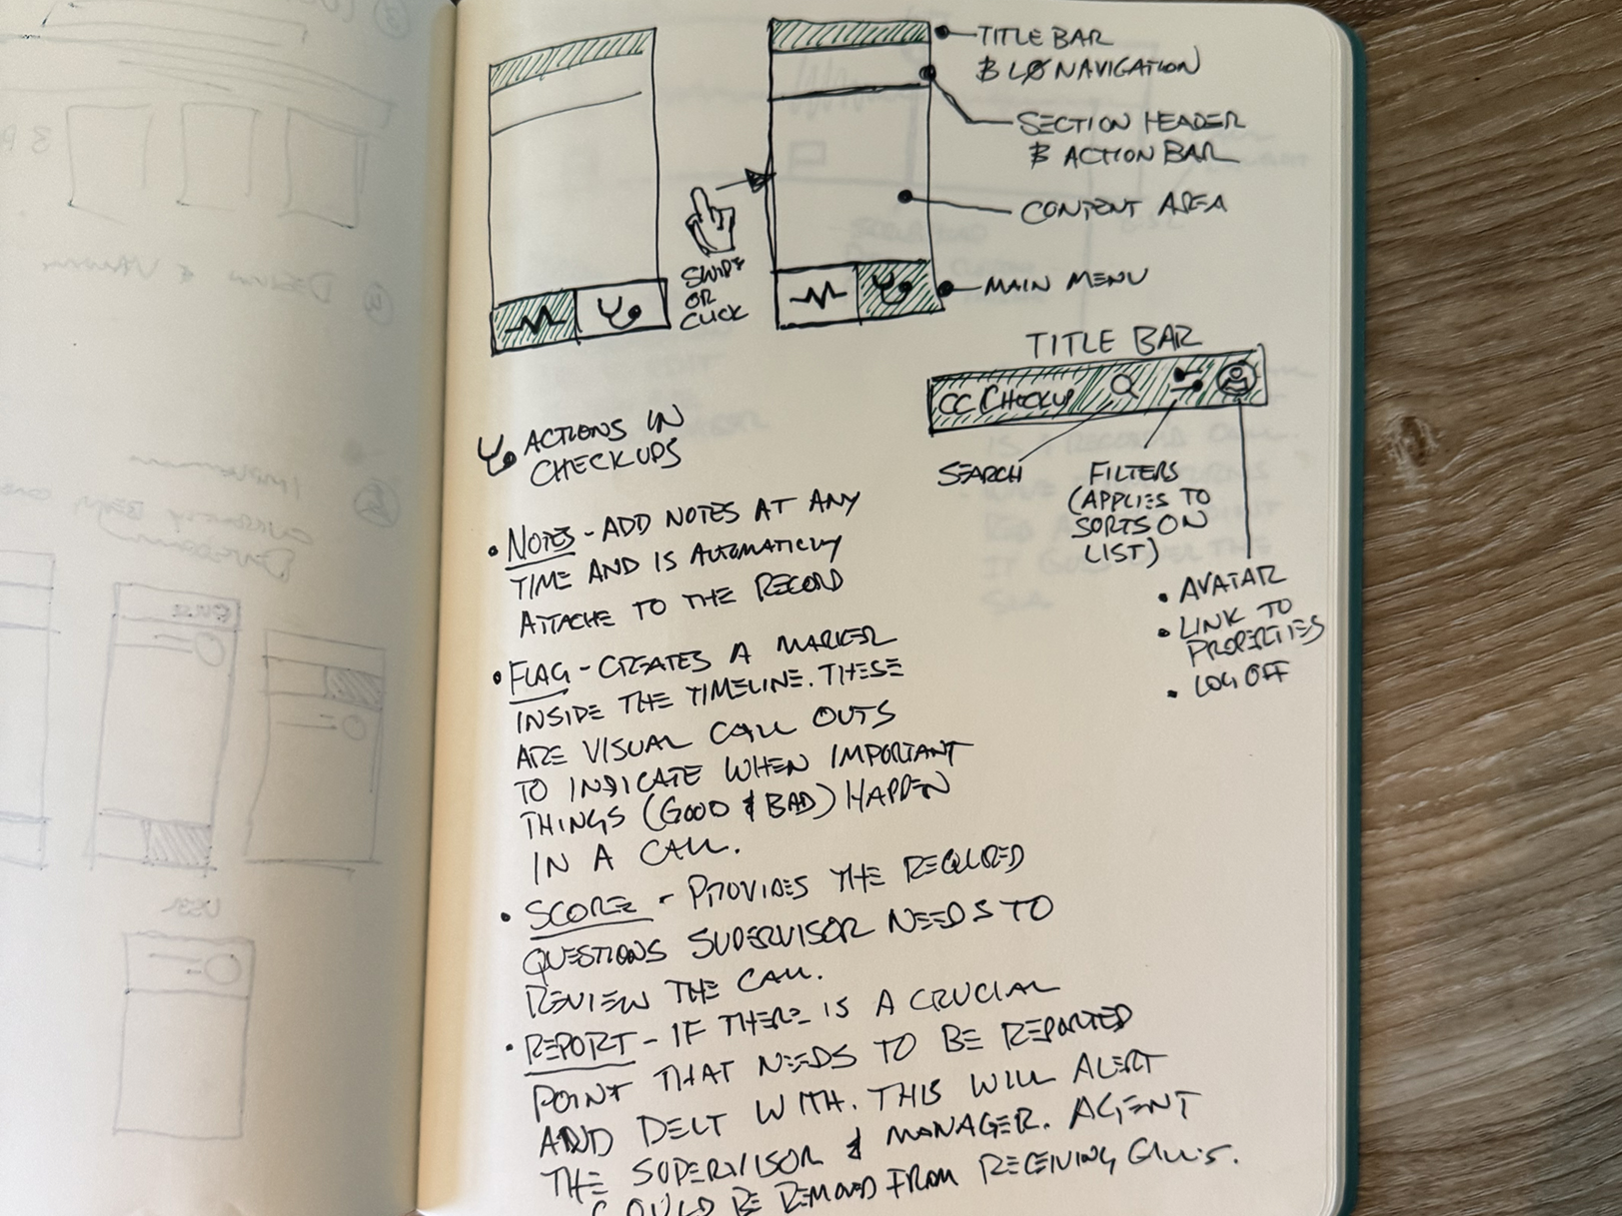 TITLE BAR
& L0 NAVIGATION
SECTION HEADER
& ACTION BAR
CONTENT AREA
SWIPE
OR
CLICK
MAIN MENU
TITLE BAR
CC CHECKUP
SEARCH
FILTERS
(APPLIES TO
SORTS ON
LIST)
• AVATAR
• LINK TO
PROPERTIES
• LOG OFF
ACTIONS IN
CHECKUPS
• NOTES - ADD NOTES AT ANY
TIME AND IS AUTOMATICLY
ATTACHE TO THE RECORD
• FLAG - CREATES A MARKER
INSIDE THE TIMELINE. THESE
ARE VISUAL CALL OUTS
TO INDICATE WHEN IMPORTANT
THINGS (GOOD & BAD) HAPPEN
IN A CALL.
• SCORE - PROVIDES THE REQUIRED
QUESTIONS SUPERVISOR NEEDS TO
REVIEW THE CALL.
• REPORT - IF THERE IS A CRUCIAL
POINT THAT NEEDS TO BE REPORTED
AND DELT WITH. THIS WILL ALERT
THE SUPERVISOR & MANAGER. AGENT
COULD BE REMOVED FROM RECEIVING CALLS.